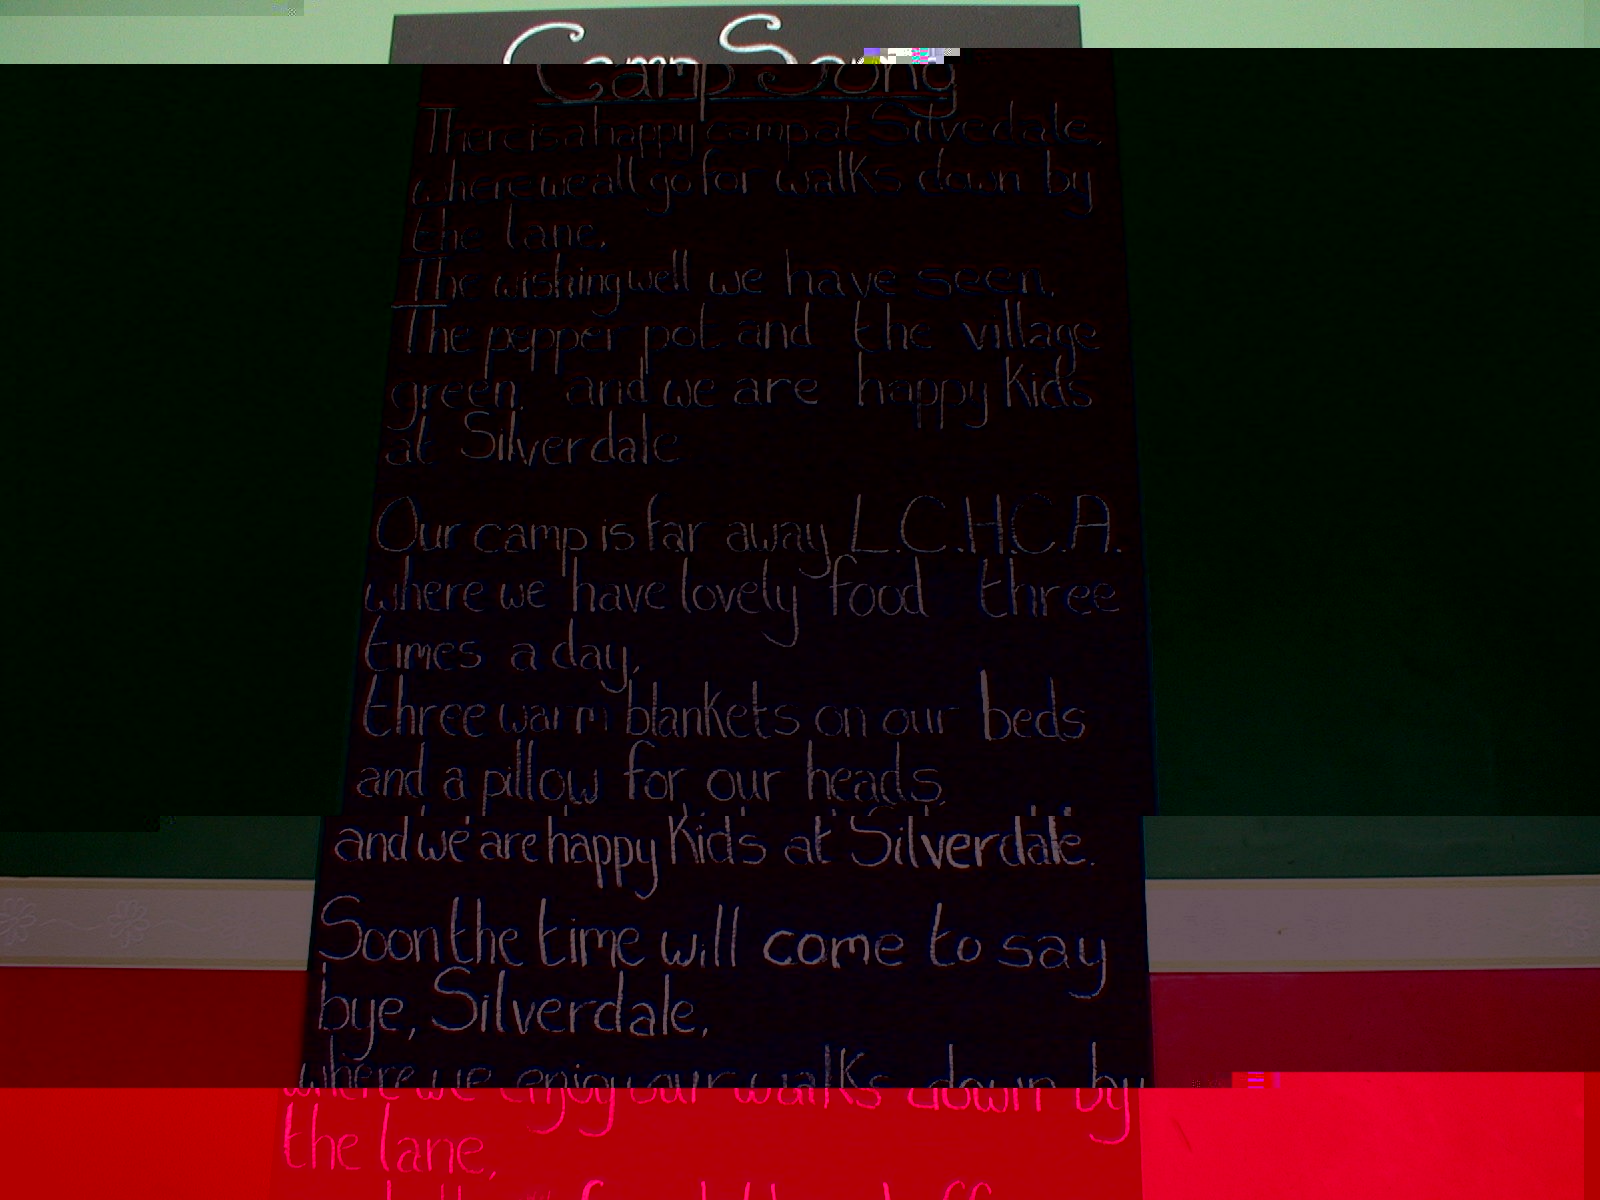 Camp Song
There is a happy camp at Silvedale,
where we all go for walks down by
the lane.
The wishing well we have seen.
The pepper pot and the village
green, and we are happy kids
at Silverdale
Our camp is far away L.C.H.C.A.
where we have lovely food three
times a day,
three warm blankets on our beds
and a pillow for our heads,
and we are happy kids at Silverdale.
Soon the time will come to say
bye, Silverdale,
where we enjoy our walks down by
the lane,